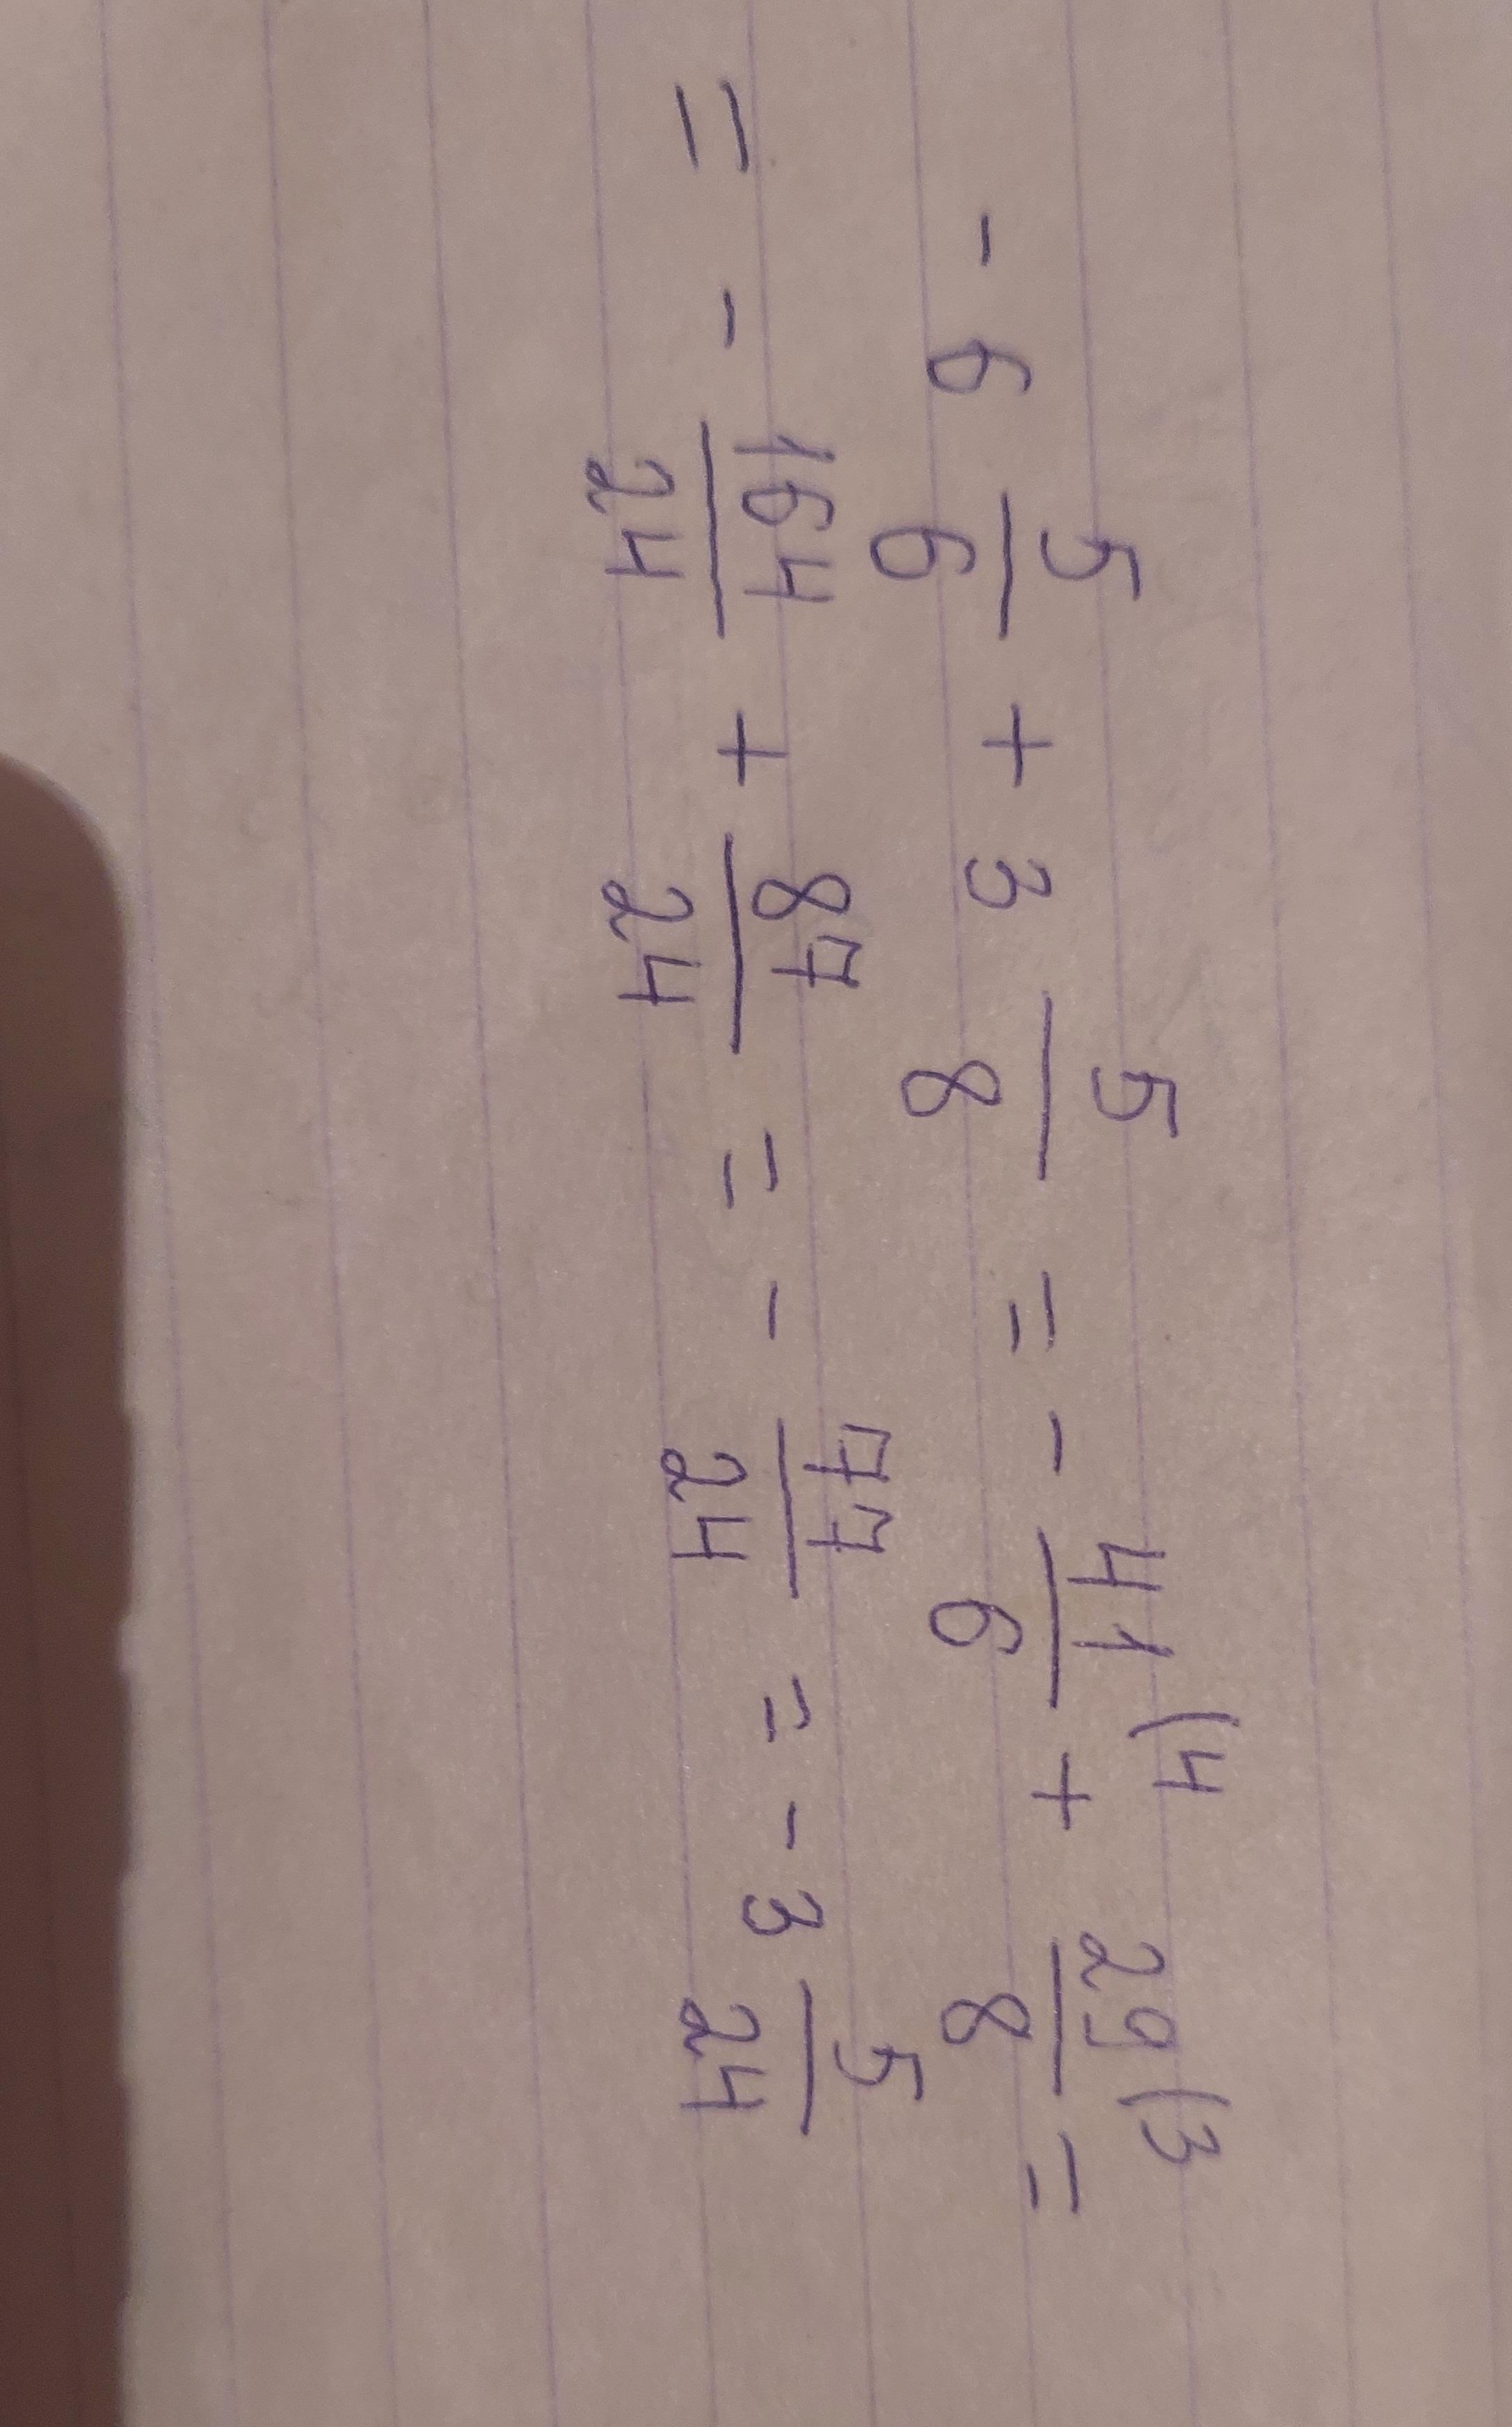 - 6 5/6 + 3 5/8 = - 41(4/6 + 29(3/8 =
= - 164/24 + 87/24 = - 77/24 = - 3 5/24